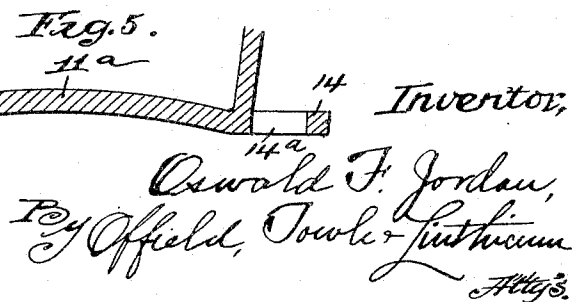 Fig. 5.
11a
14
14a
Inventor,
Oswald F. Jordan,
By Offield, Towle & Linthicum
Atty's.